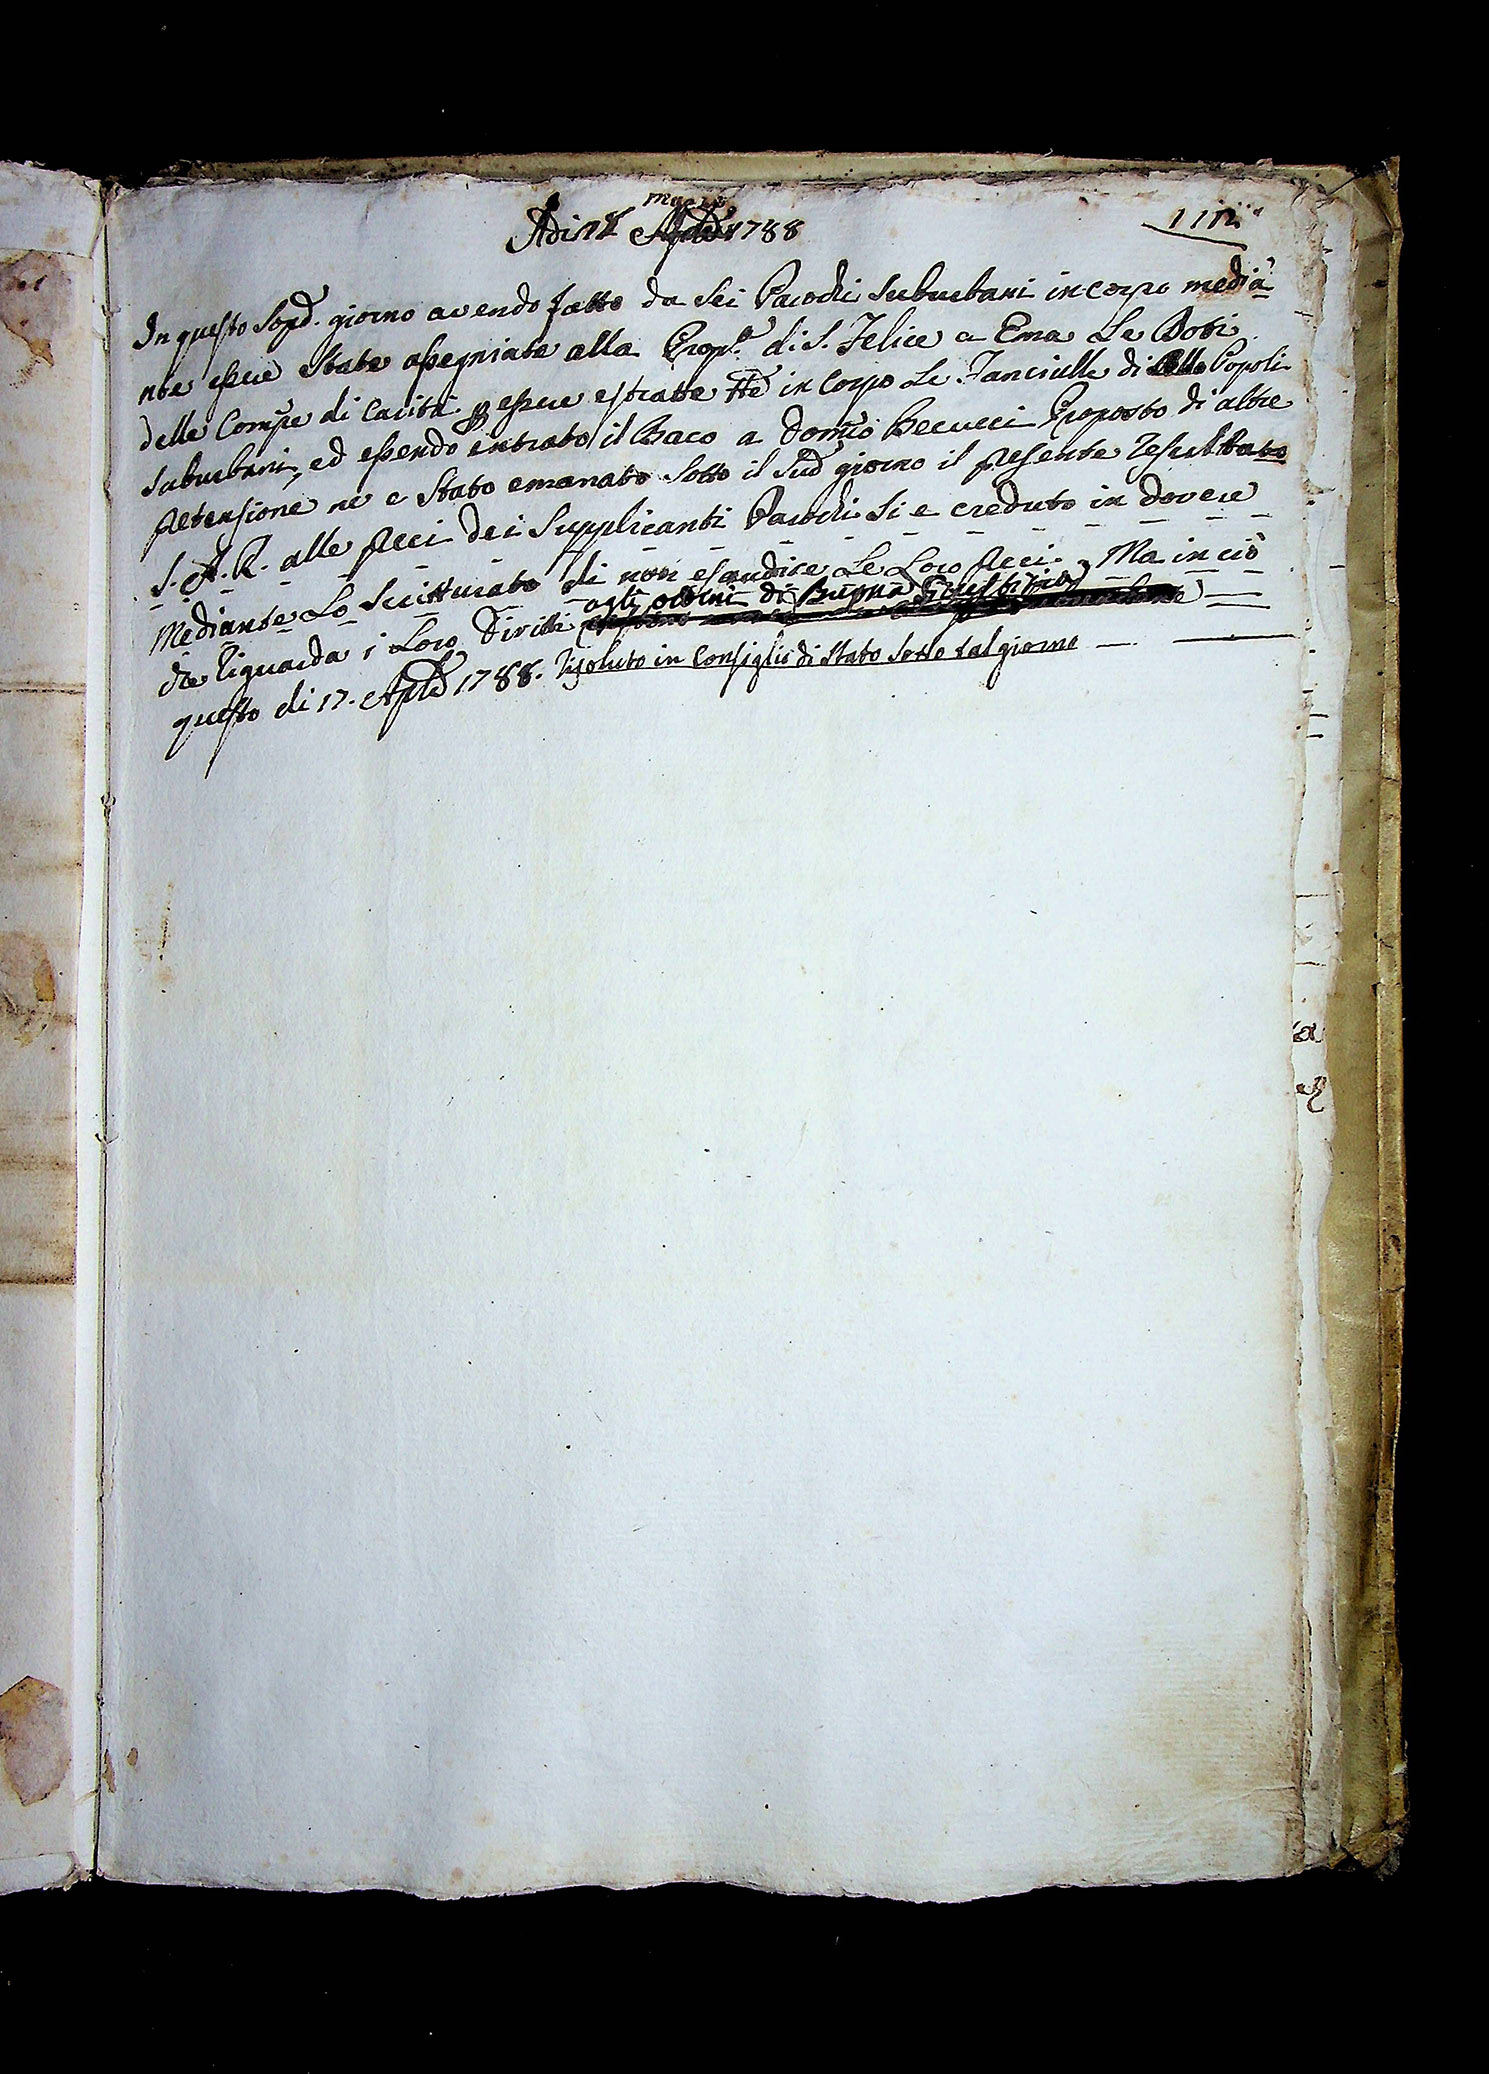 Marzo
Adi 18 1788
In questo Sopd. giorno avendo fatto da Sei Parochi Suburbani in corpo media
nte essere State assegniate alla Prop.ª di S. Felice a Ema Le Doti
delle Comp.e di Carità p essere estratte tte in Corpo Le Fanciulle di Popoli
Suburbani, ed essendo entrato il Baco a Domco Becucci Proposto di altre
pretensione ne e Stato emanato Sotto il Sud giorno il presente Resultato
S. A. R. alle preci dei Supplicanti Parochi Si e creduto in dovere
Mediante Lo Scritturato di non esaudire Le Loro preci. Ma in ciò
che Riguarda i Loro Diritti agli ordini di Buona Giustizia
questo di 17. Aple 1788. Risoluto in Consiglio di Stato Sotto tal giorno